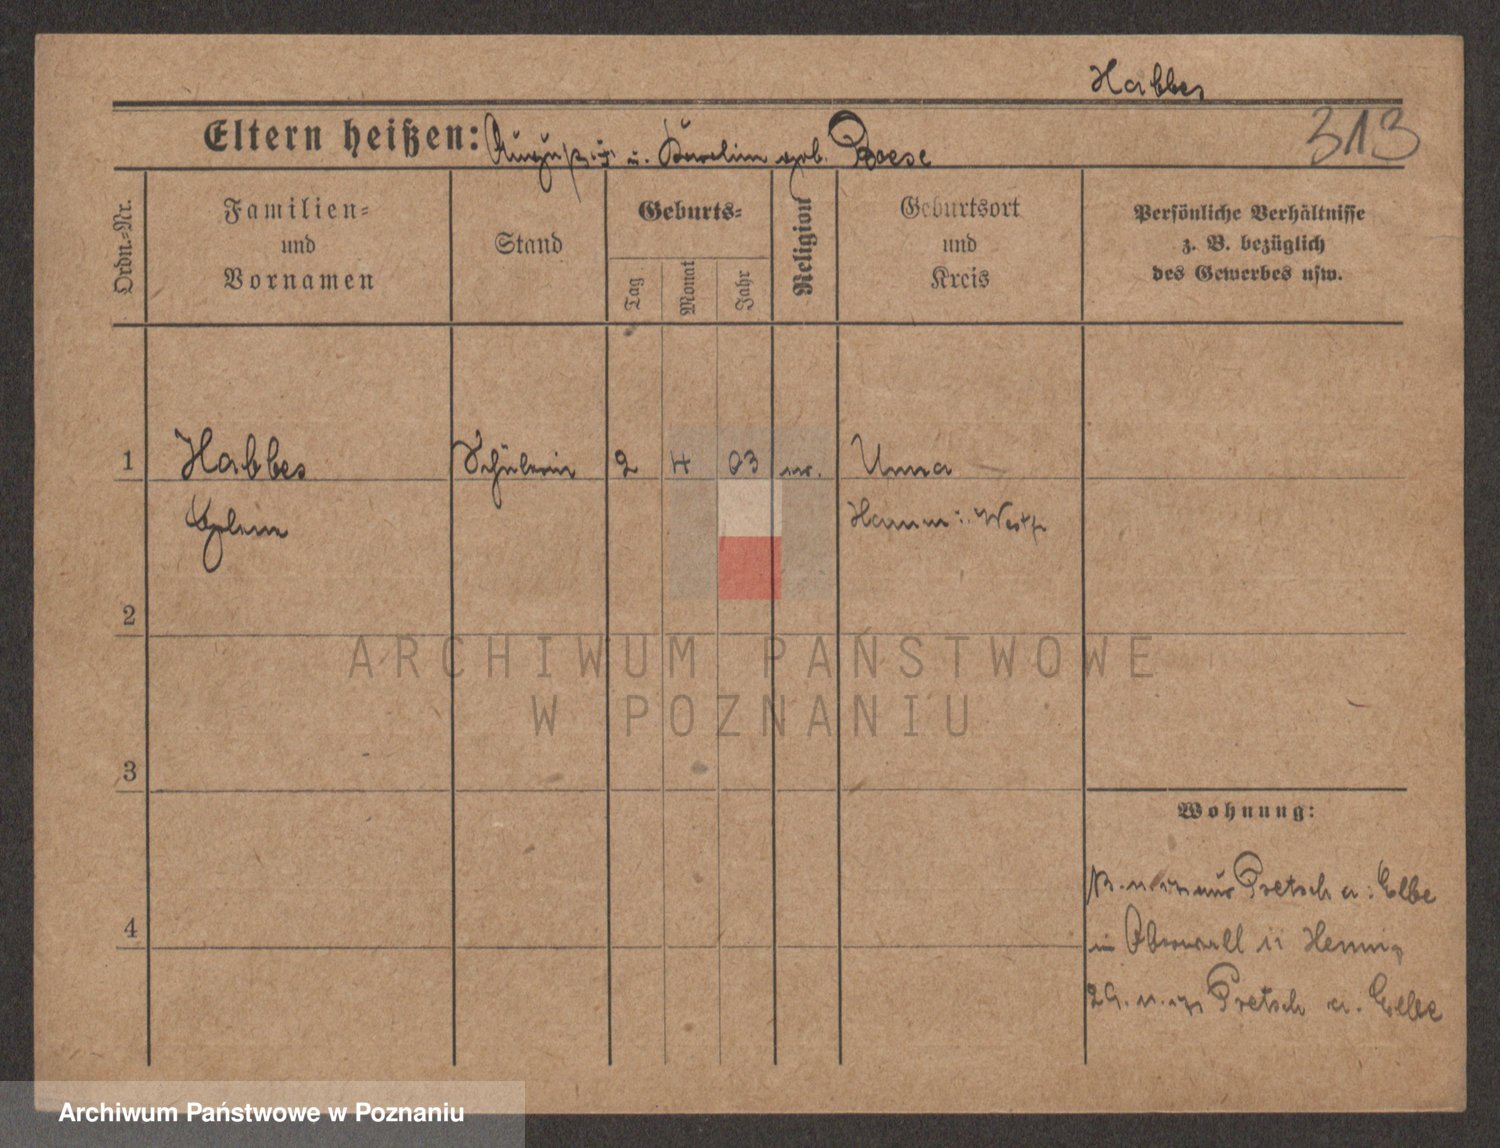 Habbes
313
Eltern heißen: August u. Karolin geb. Boese
Ordn.-Nr.
Familien-
und
Vornamen
Stand
Geburts-
Tag
Monat
Jahr
Religion
Geburtsort
und
Kreis
Persönliche Verhältnisse
z. B. bezüglich
des Gewerbes usw.
1 Habbes Schülerin 2 4 03 Unna
Hamm i. Westf
2
ARCHIWUM PAŃSTWOWE
W POZNANIU
3
Wohnung:
Pretsch a. Elbe
in Henning
4
29. Pretsch a. Elbe
Archiwum Państwowe w Poznaniu